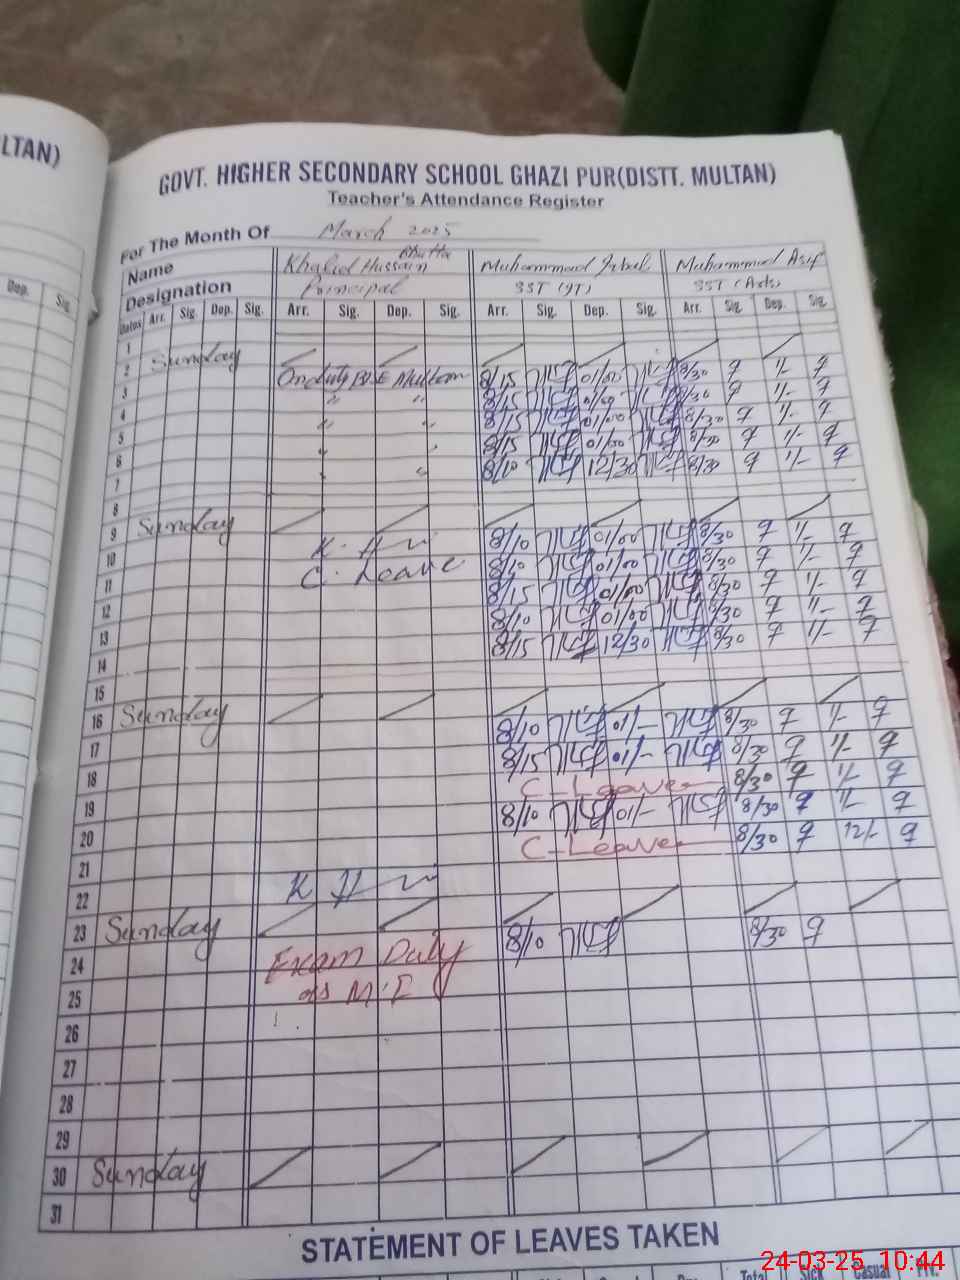 LTAN)
GOVT. HIGHER SECONDARY SCHOOL GHAZI PUR(DISTT. MULTAN)
Teacher's Attendance Register
For The Month Of March 2025
Name Khalid Hussain Bhutta Muhammad Iqbal Muhammad Asif
Designation Principal SST (IT) SST (Arts)
Dep. Sig.
Dates Arr. Sig. Dep. Sig. Arr. Sig. Dep. Sig. Arr. Sig. Dep. Sig. Arr. Sig. Dep. Sig.
1
2 Sunday
3 On duty BISE Multan 8/15 01/00 8/30 1/-
4 " " 8/15 01/00 8/30 1/-
5 " " 8/15 01/00 8/30 1/-
6 " " 8/15 01/00 8/30 1/-
7 " " 8/10 12/30 8/30 1/-
8
9 Sunday
10 8/10 01/00 8/30 1/-
11 C. Leave 8/10 01/00 8/30 1/-
12 8/15 01/00 8/30 1/-
13 8/10 01/00 8/30 1/-
14 8/15 12/30 8/30 1/-
15
16 Sunday
17 8/10 01/- 8/30 1/-
18 8/15 01/- 8/30 1/-
19 C-Leave 8/30 1/-
20 8/10 01/- 8/30 1/-
21 C-Leave 8/30 12/-
22
23 Sunday
24 Exam Duty 8/10 8/30
25 as M.I
26
27
28
29
30 Sunday
31
STATEMENT OF LEAVES TAKEN
Total Sick Casual Prv.
24-03-25 10:44